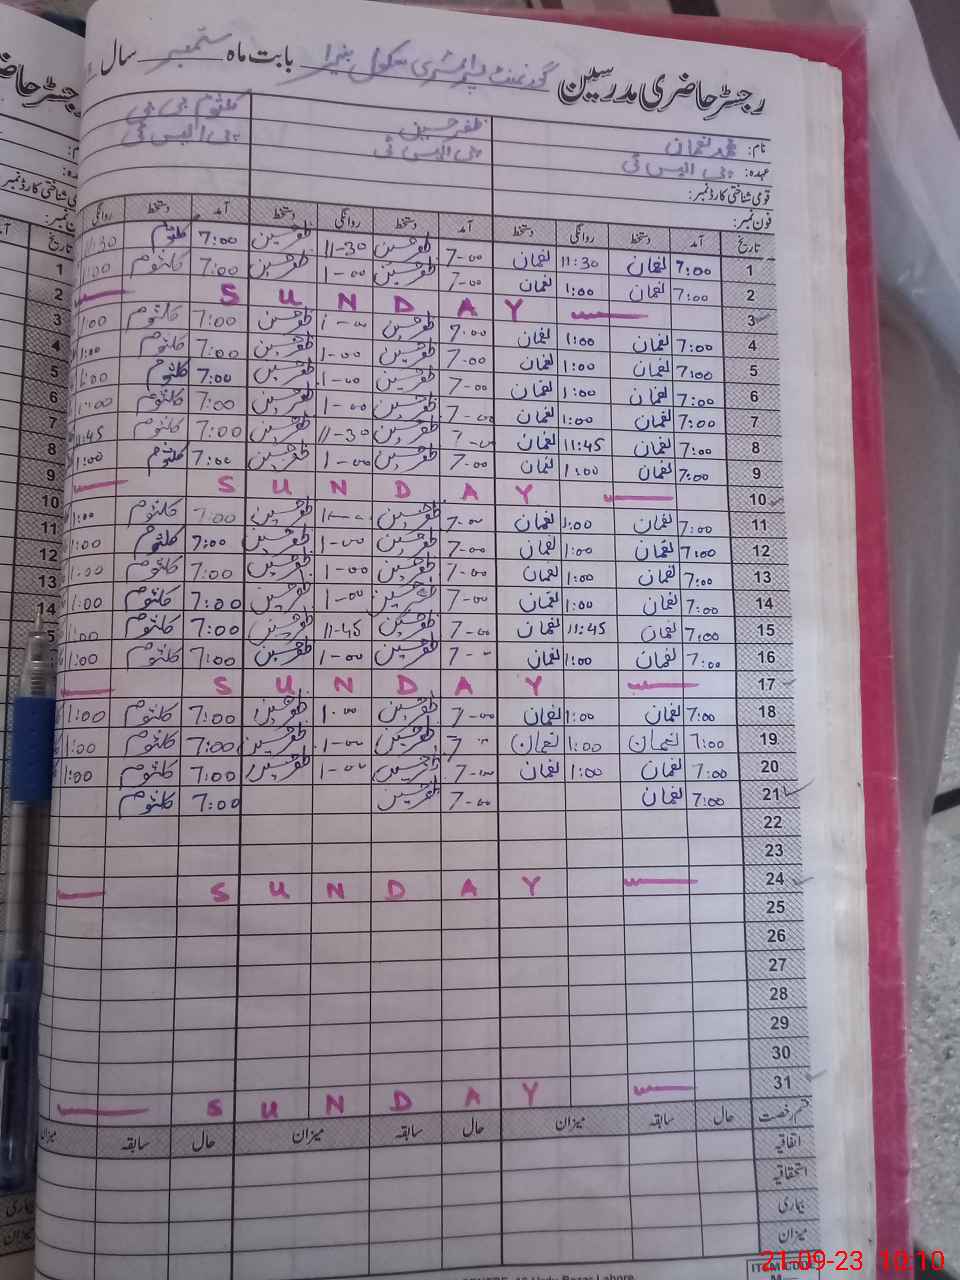 رجسٹر حاضری مدرسین گورنمنٹ پرائمری سکول بابت ماہ ستمبر سال
نام: محمد نعمان ظفر حسین کلثوم بی بی
عہدہ: پی ایس ٹی پی ایس ٹی پی ایس ٹی
قومی شناختی کارڈ نمبر:
فون نمبر:
تاریخ آمد دستخط روانگی دستخط آمد دستخط روانگی دستخط آمد دستخط روانگی
1 7:00 نعمان 11:30 نعمان 7-00 ظفر حسین 11-30 ظفر حسین 7:00 کلثوم 11:30
2 7:00 نعمان 1:00 نعمان 7-00 ظفر حسین 1-00 ظفر حسین 7:00 کلثوم 1:00
3 SUNDAY
4 7:00 نعمان 1:00 نعمان 7-00 ظفر حسین 1-00 ظفر حسین 7:00 کلثوم 1:00
5 7:00 نعمان 1:00 نعمان 7-00 ظفر حسین 1-00 ظفر حسین 7:00 کلثوم 1:00
6 7:00 نعمان 1:00 نعمان 7-00 ظفر حسین 1-00 ظفر حسین 7:00 کلثوم 1:00
7 7:00 نعمان 1:00 نعمان 7-00 ظفر حسین 1-00 ظفر حسین 7:00 کلثوم 1:00
8 7:00 نعمان 11:45 نعمان 7-00 ظفر حسین 11-30 ظفر حسین 7:00 کلثوم 11:45
9 7:00 نعمان 1:00 نعمان 7-00 ظفر حسین 1-00 ظفر حسین 7:00 کلثوم 1:00
10 SUNDAY
11 7:00 نعمان 1:00 نعمان 7-00 ظفر حسین 1-00 ظفر حسین 7:00 کلثوم 1:00
12 7:00 نعمان 1:00 نعمان 7-00 ظفر حسین 1-00 ظفر حسین 7:00 کلثوم 1:00
13 7:00 نعمان 1:00 نعمان 7-00 ظفر حسین 1-00 ظفر حسین 7:00 کلثوم 1:00
14 7:00 نعمان 1:00 نعمان 7-00 ظفر حسین 1-00 ظفر حسین 7:00 کلثوم 1:00
15 7:00 نعمان 11:45 نعمان 7-00 ظفر حسین 11-45 ظفر حسین 7:00 کلثوم 1:00
16 7:00 نعمان 1:00 نعمان 7-00 ظفر حسین 1-00 ظفر حسین 7:00 کلثوم 1:00
17 SUNDAY
18 7:00 نعمان 1:00 نعمان 7-00 ظفر حسین 1-00 ظفر حسین 7:00 کلثوم 1:00
19 7:00 نعمان 1:00 نعمان 7-00 ظفر حسین 1-00 ظفر حسین 7:00 کلثوم 1:00
20 7:00 نعمان 1:00 نعمان 7-00 ظفر حسین 1-00 ظفر حسین 7:00 کلثوم 1:00
21 7:00 نعمان 7-00 ظفر حسین 7:00 کلثوم
22
23
24 SUNDAY
25
26
27
28
29
30
31 SUNDAY
قسم رخصت حال سابقہ میزان حال سابقہ میزان حال سابقہ میزان
اتفاقیہ
استحقاقیہ
بیماری
میزان
Urdu Bazar Lahore
ITEM CODE
21-09-23 10:10